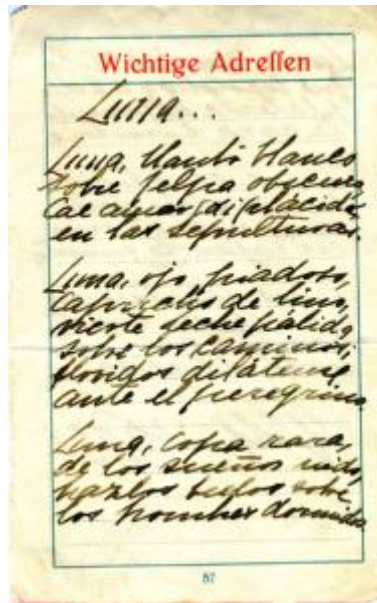 Wichtige Adressen
Luna...
Luna, llanto blanco
sobre felpa obscura,
cae
en las sepulturas.
Luna, ojo piadoso,
capuchis de lino,
vierte leche pálida
sobre los caminos;
floridos dilátense
ante el peregrino.
Luna, copa rara,
de los sueños nido,
hazlos bellos sobre
los hombres dormidos.
57